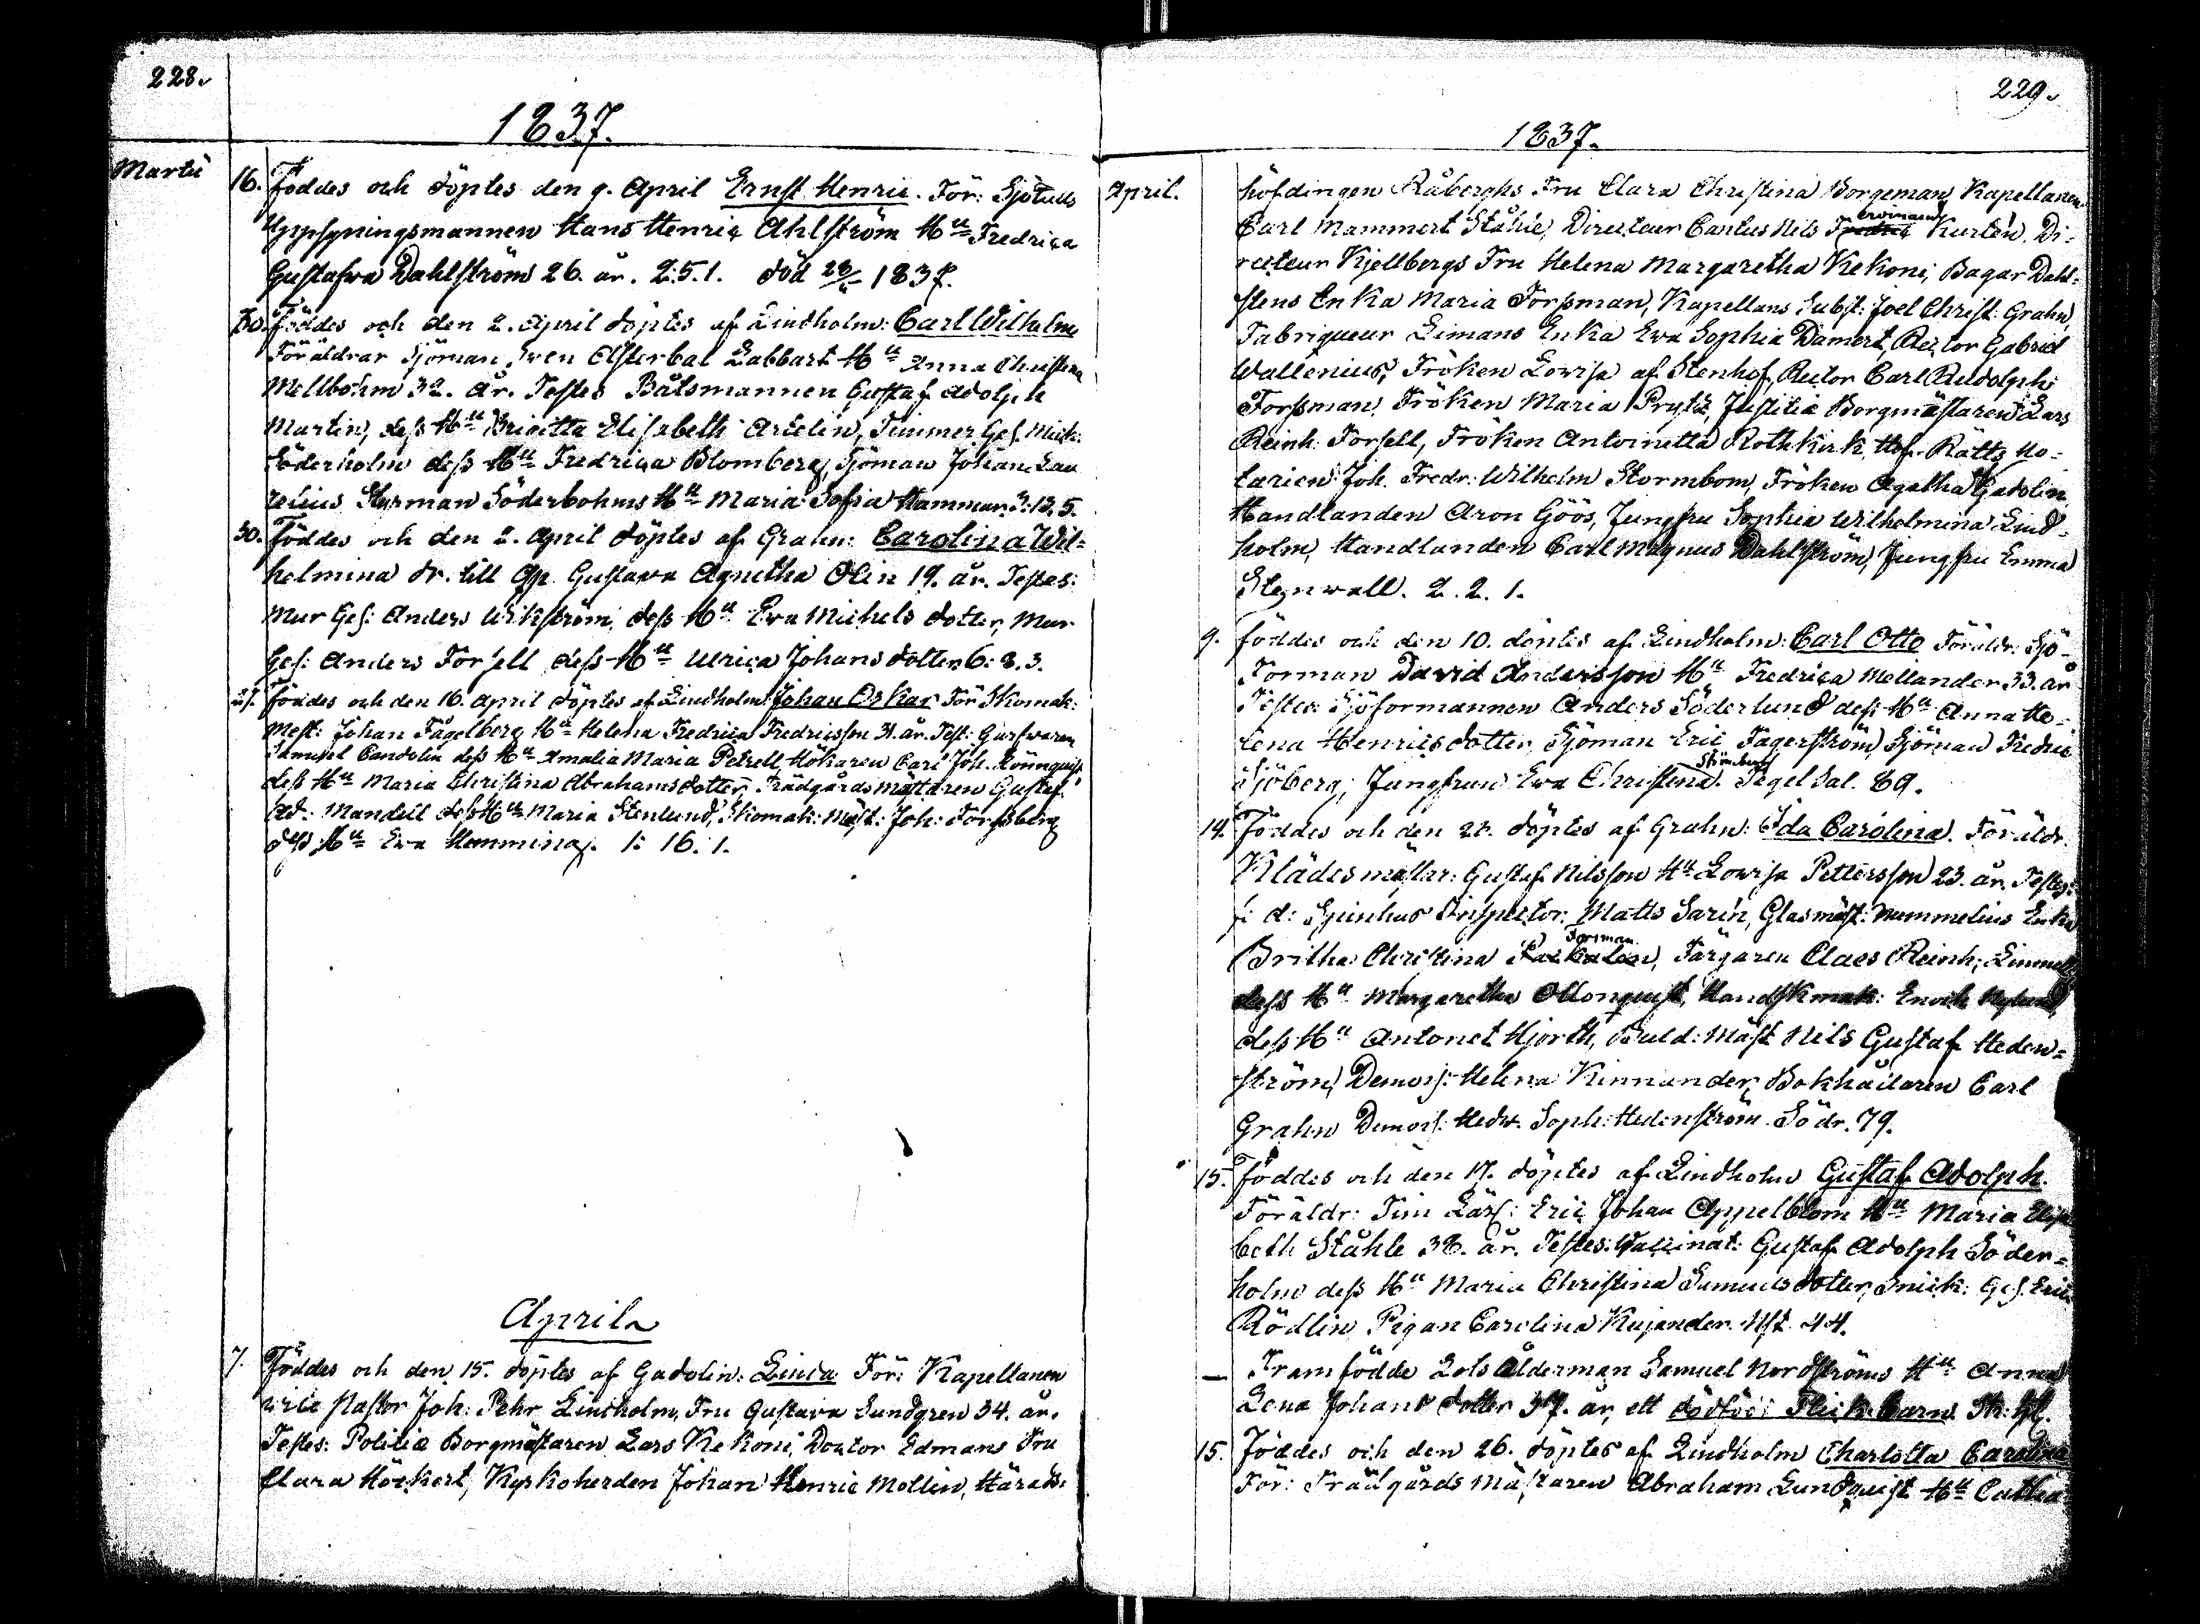 228.
1837.
Martii
16. Föddes och döptes den 9. April Ernst Henric. För: Sjötulls
Uppsyningsmannen Hans Henric Ahlström Hu Fredrica
Gustafva Dahlström 26. år. 2.5.1. död 1837.
30. Föddes och den 2. April döptes af Lindholm: Carl Wilhelm
Föräldrar Sjöman Sven Labbart Hu Anna Christina
Mellbohm 32. år. Testes Båtsmannen Gustaf Adolph
Martin, dess Hu Brigitta Elisabeth Artelin, Timmer Ges. Mich:
Söderholm dess Hu Fredrica Blomberg, Sjöman Johan Lau
relius Styrman Söderbohms Hu Maria Sofia Hammar. 3.13.5.
30. Föddes och den 2. April döptes af Grahn: Carolina Wil=
helmina dr. till Qp. Gustava Agnetha Olin 19. år. Testes:
Mur Ges: Anders Wikström, dess Hu Eva Michels dotter, Mur
Ges: Anders Forsell dess Hu Ulrica Johans dotter. 6: 8. 3.
27. Föddes och den 16. April döptes af Lindholm: Johan Oskar För Skomak:
Mest: Johan Fågelberg Hu Helena Fredrica Fredricsson 31. år. Test: Garfvaren
Samuel Candolin dess Hu Amalia Maria Petrell, Hökaren Carl Joh. Rönnquist
dess Hu Maria Christina Abrahamsdotter, Trädgårdsmästaren Gustaf
Ad. Mandell dess Hu Maria Stenlund, Skomak: Mäst: Joh: Forssberg
dess Hu Eva Hemming. 1: 16. 1.
April
7. Föddes och den 15. döptes af Gadolin: Lina För: Kapellanen
Pastor Joh: Pehr Lindholm, Fru Gustava Sundgren 34. år.
Testes: Politiæ Borgmästaren Lars Kekoni, Doctor Edmans Fru
Clara Höckert, Kyrkoherden Johan Henric Mollin, Härads:
229.
1837.
April.
höfdingen Råberghs Fru Clara Christina Borgeman, Kapellanen
Carl Mammert Ståhle, Directeur Cantus Nils Kurtén, Di=
recteur Kjellbergs Fru Helena Margaretha Kekoni, Bagar Dahl=
stens Enka Maria Forssman, Kapellans Subst: Joel Christ: Grahn,
Fabriqueur Limans Enka Eva Sophia Damert, Rector Gabriel
Wallenius, Fröken Lovisa af Stenhof, Rector Carl Rudolph
Forssman, Fröken Maria Prytz, Justitiæ Borgmästaren Lars
Reinh. Forsell, Fröken Antoinetta Rothkirk, Hof-Rätts No=
tarien Joh. Fredr: Wilhelm Stormbom, Fröken Agatha Gadolin
Handlanden Aron Göös, Jungfru Sophia Wilhelmina Lind=
holm, Handlanden Carl Magnus Dahlström, Jungfru Emma
Stenvall. 2. 2. 1.
9. föddes och den 10. döptes af Lindholm: Carl Otto Föräldr: Sjö-
Forman David Andersson Hu Fredrica Mellander 33. år
Testes: Sjöformannen Anders Söderlund dess Hu Anna He=
lena Henricsdotter, Sjöman Eric Fagerström, Sjöman Fredric
Sjöberg, Jungfrun Eva Christina Segel dal. 89.
14. Föddes och den 21. döptes af Grahn: Ida Carolina. Föräldr.
Klädesmästar: Gustaf Nilsson Hu Lovisa Pettersson 23. år. Testes:
f: d: Spinhus Inspector: Matts Sarin, Glasmäst: Nummelius Enka
Britha Christina Forsman, Färgaren Claes Reinh:
dess Hu Margaretha Ollonquist, Handskmak: Enoch Nylund
dess Hu Antonet Hjorth, Buld: Mäst Nils Gustaf Heden=
ström, Demois: Helena Kinnander, Bokhållaren Carl
Grahn Demois: Hedv. Soph: Hedenström. Södr. 79.
15. föddes och den 17. döptes af Lindholm Gustaf Adolph.
Föräldr: Tim Lärl: Eric Johan Appelblom Hu Maria Elisa
beth Ståhle 38. år. Testes: Vaccinat: Gustaf Adolph Söder=
holm dess Hu Maria Christina Samuelsdotter, Snick: Ges. Eric
Rödlin, Pigan Carolina Kujander. Nst 44.
— Framfödde Lots Ålderman Samuel Nordströms Hu Anna
Lena Johans dotter 37. år, ett dödfödt Flick Barn.
15. Föddes och den 26. döptes af Lindholm Charlotta Carolina
För: Trädgårds Mästaren Abraham Lundquist Hu Catha